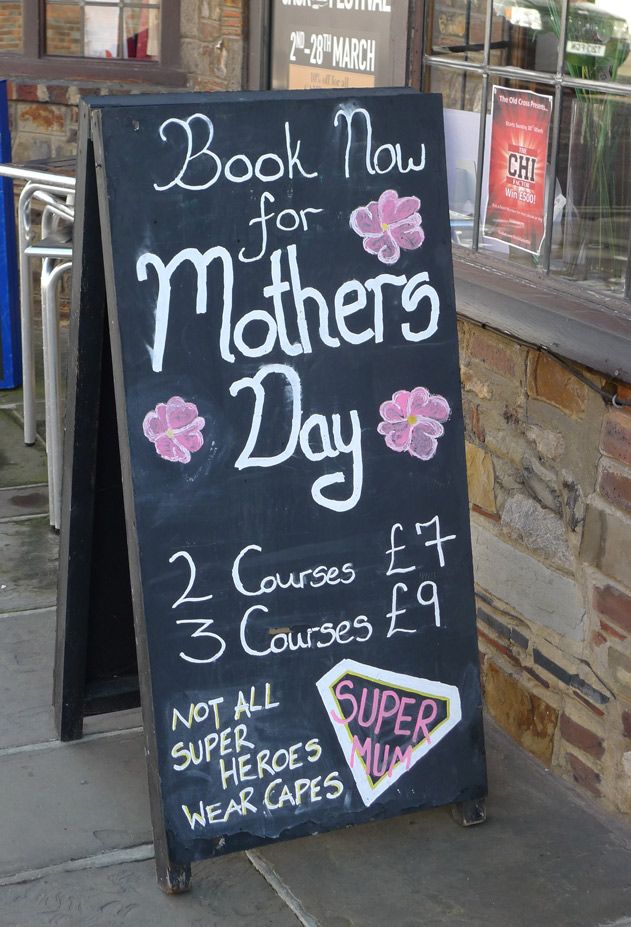 FESTIVAL
2ND-28TH MARCH
10% off for all
The Old Cross Presents...
THE
CHI
FACTOR
Win £500!
Book Now
for
Mothers
Day
2 Courses £7
3 Courses £9
NOT ALL
SUPER
HEROES
WEAR CAPES
SUPER
MUM